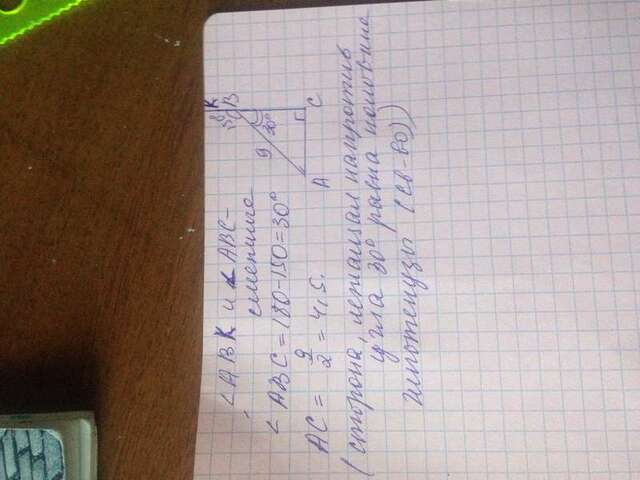 ∠ABK и ∠ABC-
смежные
∠ABC = 180-150=30°
AC = 9/2 = 4,5.
(сторона, лежащая напротив
угла 30° равна половине
гипотенузы (св-во))
K
150°
B
9
30°
A
C